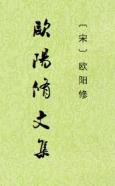 〔宋〕欧阳修
歐陽脩文集